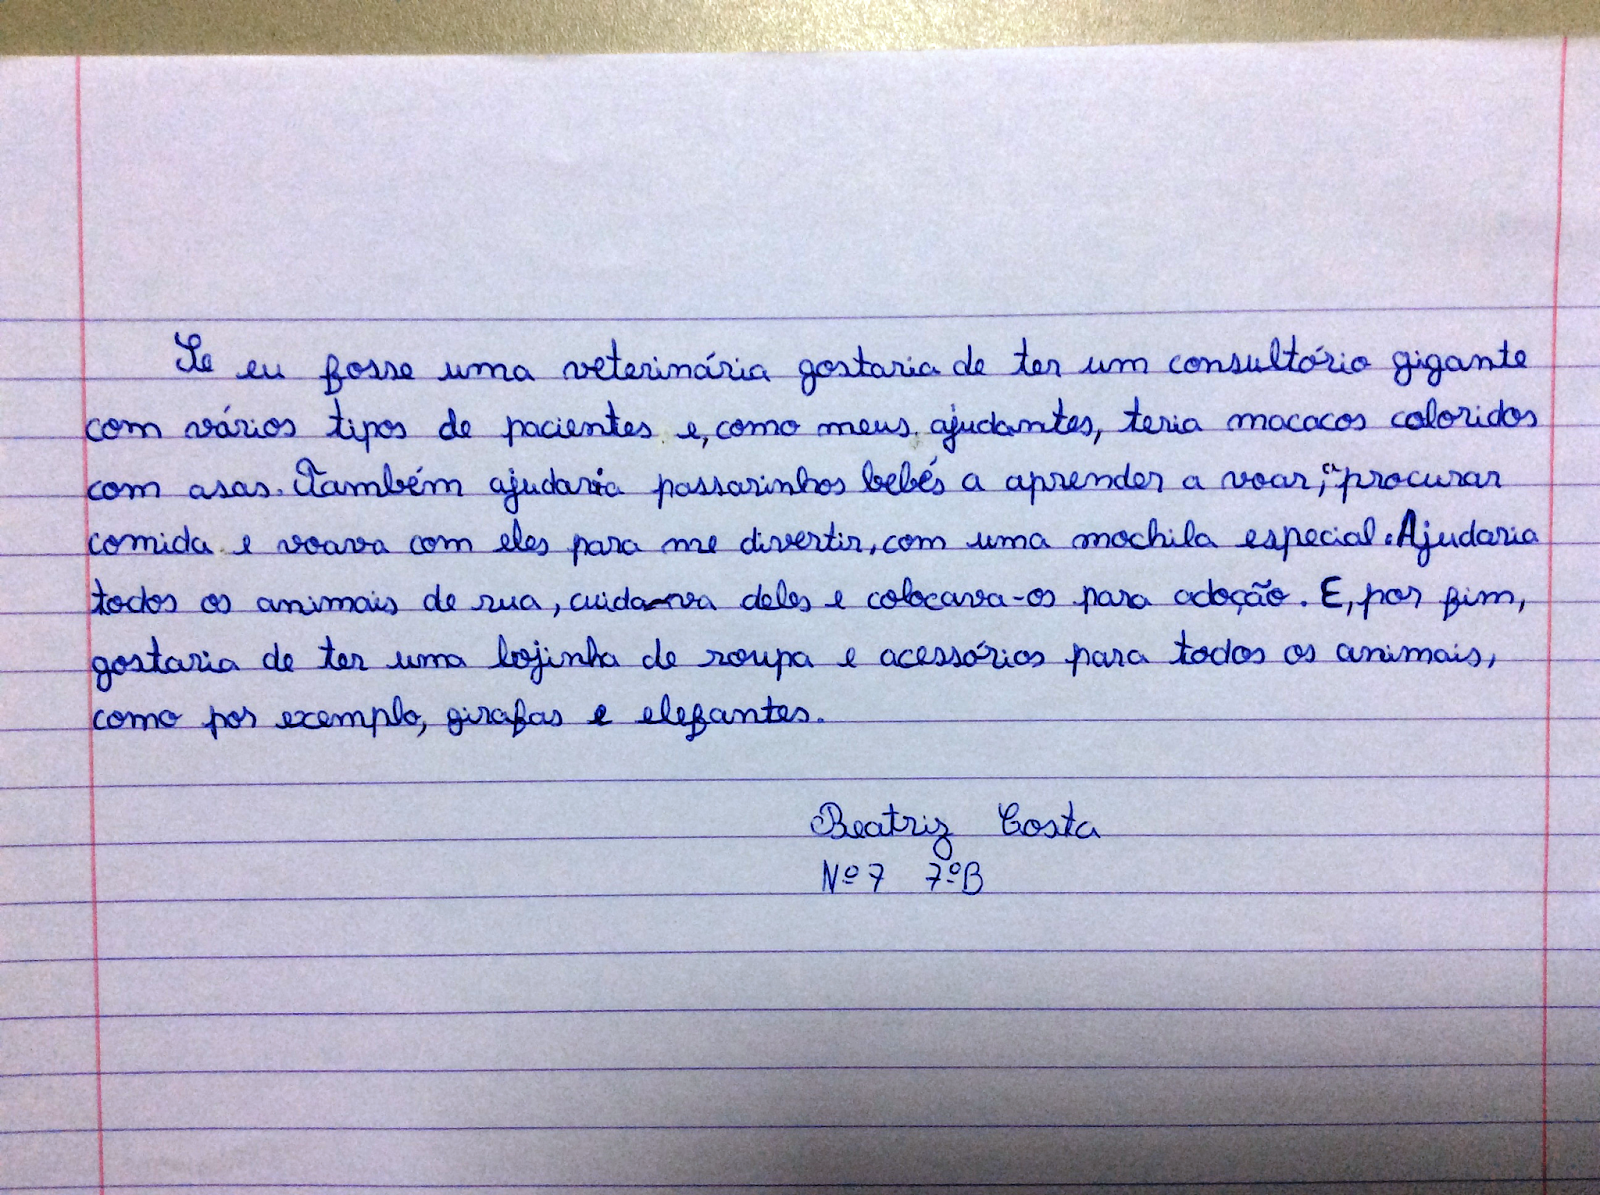 Se eu fosse uma veterinária gostaria de ter um consultório gigante
com vários tipos de pacientes e, como meus ajudantes, teria macacos coloridos
com asas. Também ajudaria passarinhos bebés a aprender a voar, a procurar
comida e voava com eles para me divertir, com uma mochila especial. Ajudaria
todos os animais de rua, cuidava deles e colocava-os para adoção. E, por fim,
gostaria de ter uma lojinha de roupa e acessórios para todos os animais,
como por exemplo, girafas e elefantes.
Beatriz Costa
Nº7 7ºB